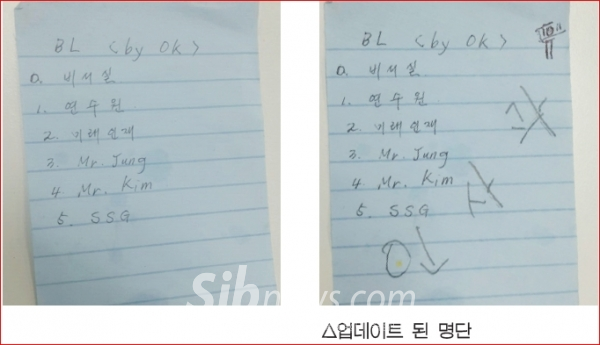 BL <by OK>
0. 비서실
1. 연수원
2. 미래인재
3. Mr. Jung
4 Mr. Kim
5. SSG
BL <by OK>
0. 비서실
1. 연수원
2. 미래인재
3. Mr. Jung
4 Mr. Kim
5. SSG
Sibnews.com
△업데이트 된 명단